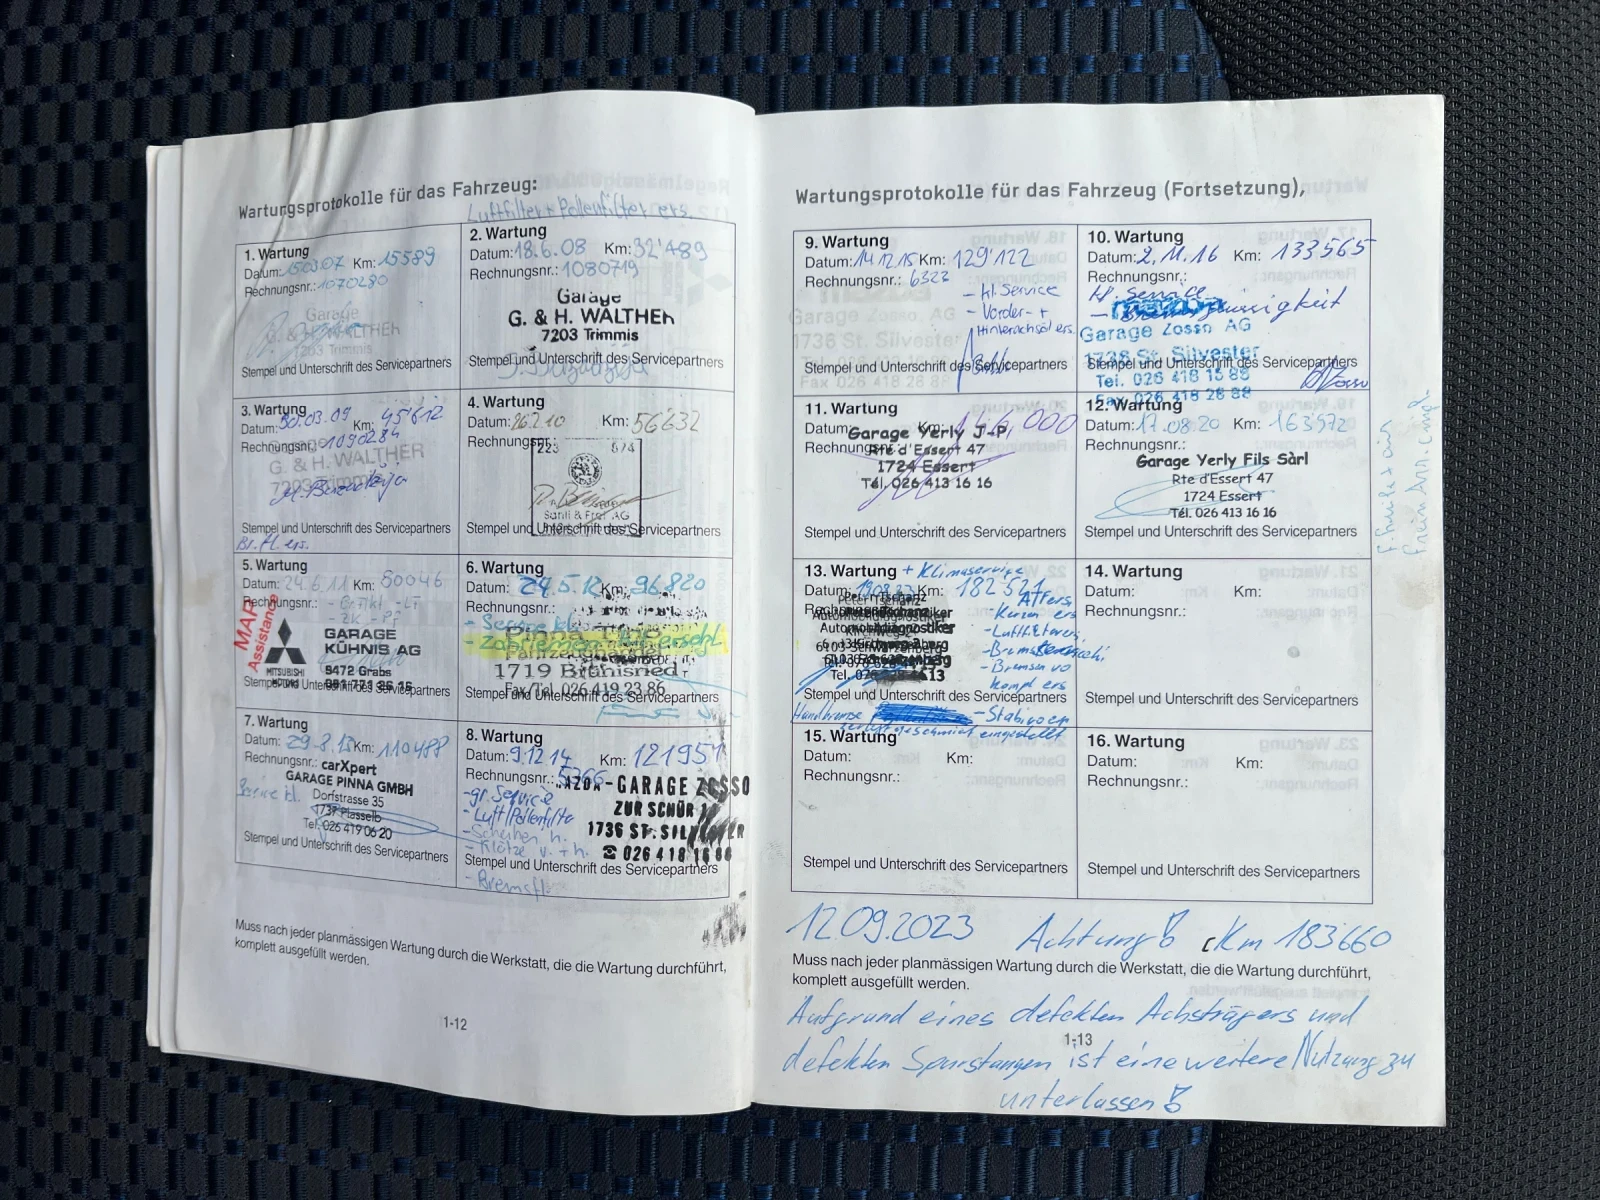 Wartungsprotokolle für das Fahrzeug:
Luftfilter + Pollenfilter ers.
1. Wartung
Datum: 15.03.07 Km: 15589
Rechnungsnr.: 1070280
Garage
G. & H. WALTHER
7203 Trimmis
Stempel und Unterschrift des Servicepartners
2. Wartung
Datum: 18.6.08 Km: 32'489
Rechnungsnr.: 1080719
Garage
G. & H. WALTHER
7203 Trimmis
Stempel und Unterschrift des Servicepartners
3. Wartung
Datum: 30.03.09 Km: 45'612
Rechnungsnr.: 1090284
G. & H. WALTHER
7203 Trimmis
Stempel und Unterschrift des Servicepartners
Br. fl. ers.
4. Wartung
Datum: 26.2.10 Km: 56632
Rechnungsnr.:
223 674
Stempel und Unterschrift des Servicepartners
5. Wartung
Datum: 24.6.11 Km: 80046
Rechnungsnr.:
MAP
Assistance
GARAGE
KÜHNIS AG
MITSUBISHI
MOTORS
9472 Grabs
Stempel und Unterschrift des Servicepartners
6. Wartung
Datum: 24.5.12 Km: 96.820
Rechnungsnr.:
- Service kl.
1719 Brünisried
Fax/Tel. 026 419 23 86
Stempel und Unterschrift des Servicepartners
7. Wartung
Datum: 29.8.13 Km: 110488
Rechnungsnr.:
carXpert
GARAGE PINNA GMBH
Service kl.
Dorfstrasse 35
1737 Plasselb
Tel. 026 419 06 20
Stempel und Unterschrift des Servicepartners
8. Wartung
Datum: 9.12.14 Km: 121951
Rechnungsnr.: 5766
-GARAGE ZOSSO
- gr. Service
ZUR SCHÜR 1
- Luft/Pollenfilter
1736 ST. SILVESTER
- Scheiben h.
- Klötze v. + h.
☎ 026 418 16 88
Stempel und Unterschrift des Servicepartners
- Bremsfl.
Muss nach jeder planmässigen Wartung durch die Werkstatt, die die Wartung durchführt,
komplett ausgefüllt werden.
1-12
Wartungsprotokolle für das Fahrzeug (Fortsetzung),
9. Wartung
Datum: 14.12.15 Km: 129'122
Rechnungsnr.: 6323
- kl. Service
- Vorder- +
Hinterachsöl ers.
Garage Zosso AG
1736 St. Silvester
Fax 026 418 28 88
Stempel und Unterschrift des Servicepartners
10. Wartung
Datum: 2.11.16 Km: 133565
Rechnungsnr.:
kl. Service
Garage Zosso AG
1736 St. Silvester
Stempel und Unterschrift des Servicepartners
Fax 026 418 28 88
11. Wartung
Datum: Km:
Rechnungsnr.:
Garage Yerly J-P.
Rte d'Essert 47
1724 Essert
Tél. 026 413 16 16
Stempel und Unterschrift des Servicepartners
12. Wartung
Datum: 17.08.20 Km: 163572
Rechnungsnr.:
Garage Yerly Fils Sàrl
Rte d'Essert 47
1724 Essert
Tél. 026 413 16 16
Stempel und Unterschrift des Servicepartners
13. Wartung + Klimaservice
Datum: Km: 182521
Rechnungsnr.:
Automobildiagnostiker
- Bremsen vo
kompl ers
Stempel und Unterschrift des Servicepartners
Handbremse
- Stabi vo er
eingestellt
14. Wartung
Datum: Km:
Rechnungsnr.:
Stempel und Unterschrift des Servicepartners
15. Wartung
Datum: Km:
Rechnungsnr.:
Stempel und Unterschrift des Servicepartners
16. Wartung
Datum: Km:
Rechnungsnr.:
Stempel und Unterschrift des Servicepartners
12.09.2023 Achtung! Km 183660
Muss nach jeder planmässigen Wartung durch die Werkstatt, die die Wartung durchführt,
komplett ausgefüllt werden.
Aufgrund eines defekten Achsträgers und
1-13
defekten Spurstangen ist eine weitere Nutzung zu
unterlassen!